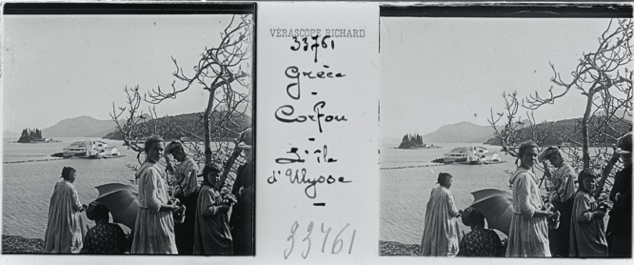 VÉRASCOPE RICHARD
33761
Grèce
-
Corfou
-
L'île
d'Ulysse
-
33761